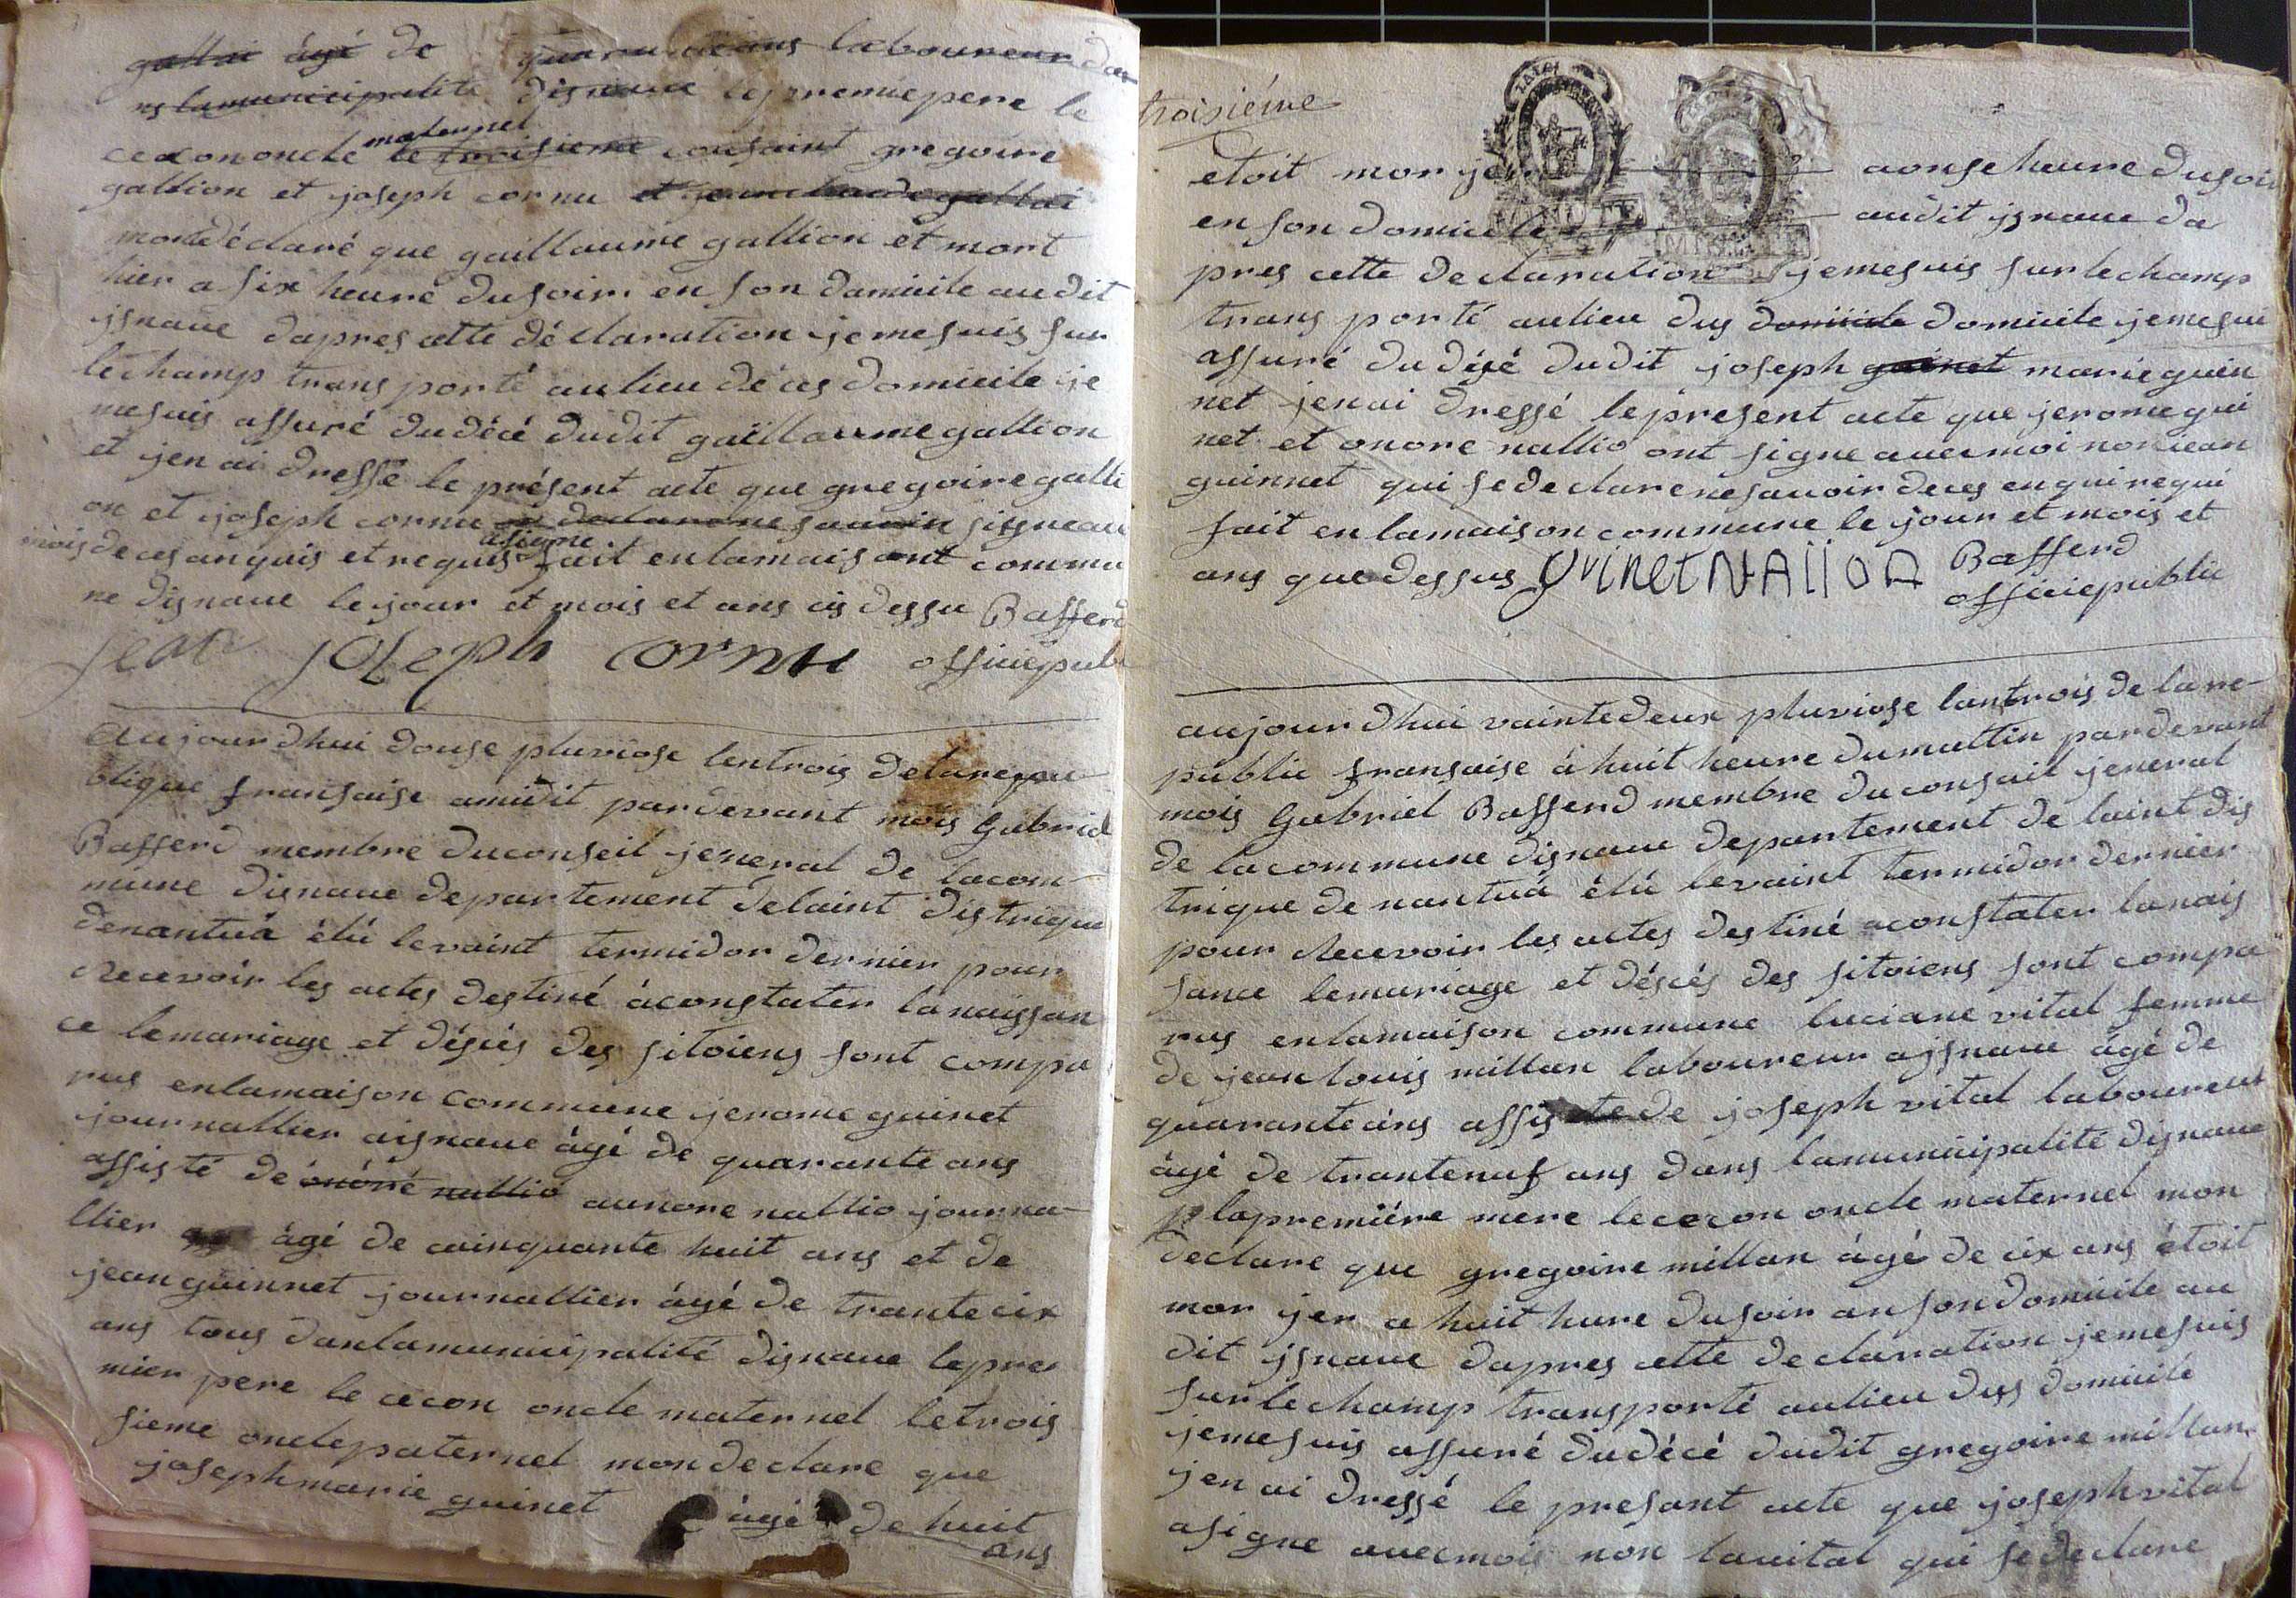 gallai âgé de quarente ans laboureur dan
ns lamunicipalité disnave lepremie pere le
cecon oncle maternel le troisieme cousaint gregoire
gallion et joseph cornu et jean claude gallai
mondéclaré que guillaume gallion et mort
hier a six heure dusoir en son domicile audit
jsnave dapres cette déclaration jemesuis sur
lechamp trans porté aulieu de ces domicile je
mesuis assuré dudécé dudit guillaume gallion
et jen ai dressé le présent acte que gregoire galli
on et joseph cornu on declare ne savoir signe au
mois de ces anquis et requis asigne fait enlamaisont commu
ne disnave le jour et mois et ans cis dessu Bafferd
jean joseph cornu officiepubl
Aujourdhui douse pluviose lentrois delarepu
blique fransaise amidit pardevant mois Gabriel
Bafferd membre duconseil jeneral de lacom
mune disnave departement delaint distrique
denantuá élú levaint termidor dernier pour
Recevoir les actes destiné áconstater lanaissan
ce lemariage et désiés des sitoiens sont compa
rus enlamaison commune jerome guinet
journallier aisnave âgé de quarante ans
assisté de onóré nallio aunore nallio journa
llier âgé de cinquante huit ans et de
jean guinnet journallier âgé de trantecix
ans tous danlamunicipalité disnave lepre
mier pere le cecon oncle maternel letrois
sieme onclepaternel mondeclare que
josephmarie guinet âgé de huit
ans
troisiéme
etoit mor jer aonse heure dusoir
en son domicile audit jsnave da
pres cette declaration jemesuis surlechamp
trans porté aulieu dus domicile domicile jemesui
assuré dudésé dudit joseph guinet marie guin
net jenai dressé lepresent acte que jerome gui
net et onore nallio ont signe avecmoi non jean
guinnet qui sedeclare nesavoir deces enquirequi
fait en lamaison commune le jour et mois et
ans que dessus gvinet NAlioA Bafferd
officiepublic
aujourdhui vaintedeux pluviose lantrois de lare
public fransaise à huit heure dumattin pardevant
mois Gabriel Bafferd membre duconsail jeneral
de lacommune disnave departement de laint dis
trique de nantuá élú levaint termidor dernier
pour Recevoir les actes destiné aconstater lanais
sance lemariage et déscés des sitoiens sont compa
rus enlamaison commune luciane vital femme
de jeanlouis millan laboureur ajsnave âgé de
quaranteans assistede joseph vital laboureur
âgé de trantenuf ans dans lamunicipalité disnave
lapremiére mere lececon oncle maternel mon
declare que gregoire millan âgé de cix ans étoit
mor jer a huit hure dusoir anson domicile au
dit jsnave dapres cette declaration jemesuis
surlechamp transporté aulieu dus domicile
jemesuis assuré dudécé dudit gregoire millan
jen ai dressé le presant acte que josephvital
asigne avecmois non lavital qui sedeclare